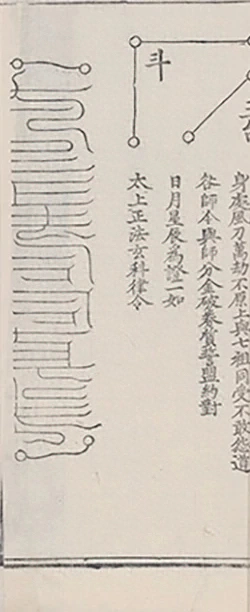 斗
身䖏風刀萬劫不原上與七祖同受不敢怨道
咎師今與師分金破券賫誓盟約對
日月星辰為證一如
太上正法玄科律令